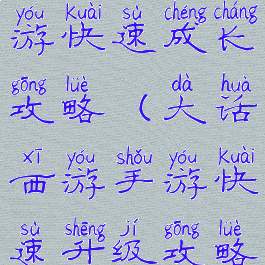 yóu kuài sù chéng cháng
游快速成长
gōng lüè dà huà
攻略（大话
xī yóu shǒu yóu kuài
西游手游快
sù shēng jí gōng lüè
速升级攻略